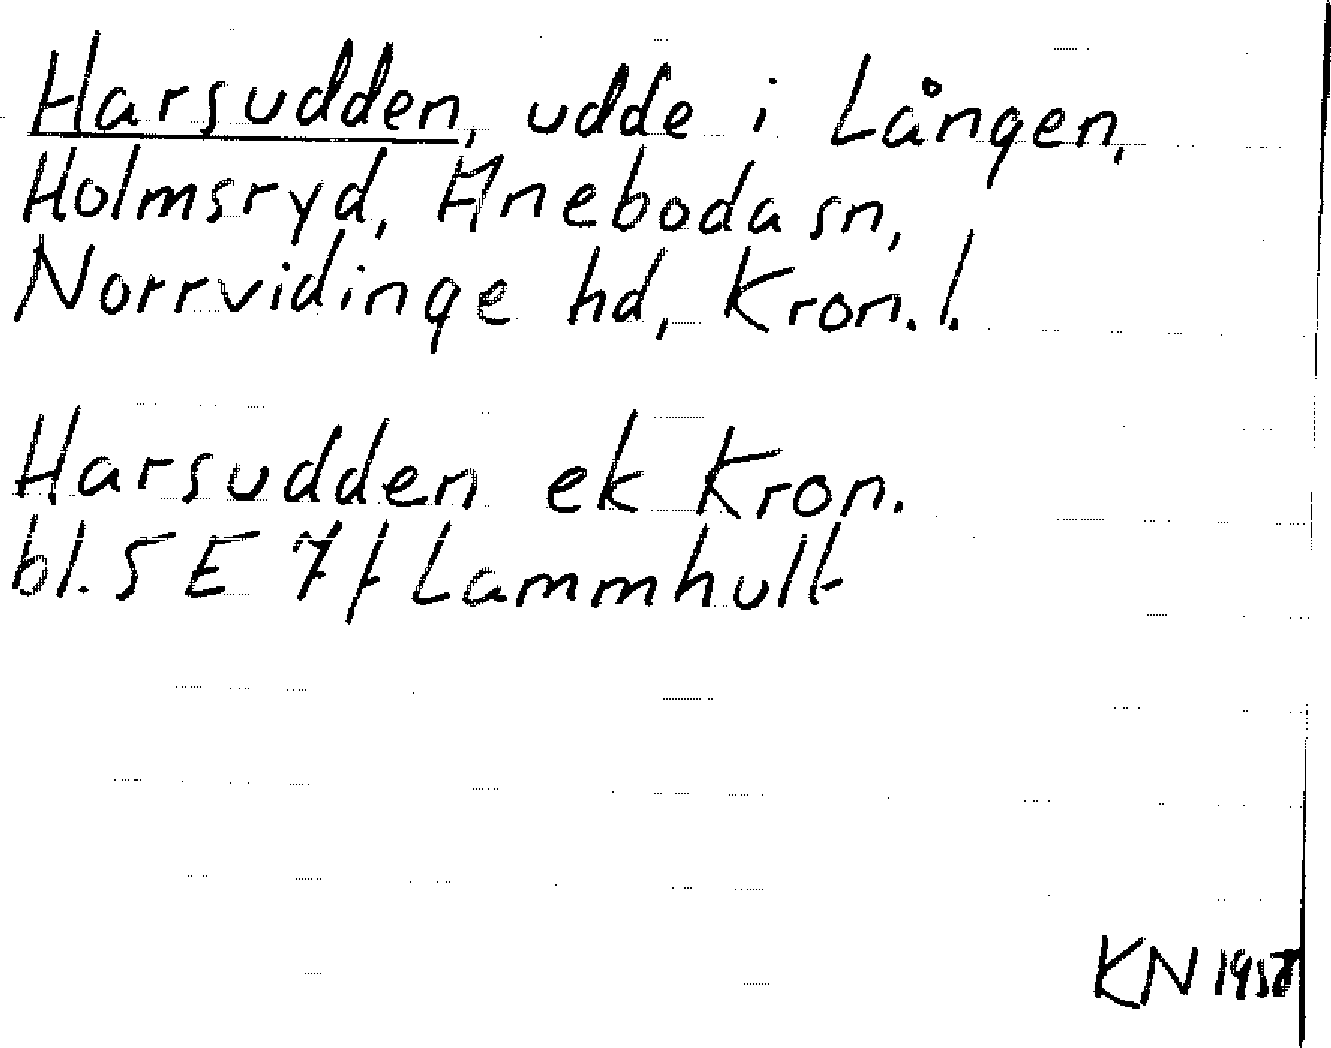 Harsudden, udde i Lången,
Holmsryd, Aneboda sn,
Norrvidinge hd, Kron. l.
Harsudden ek Kron.
bl. 5 E 7 f Lammhult
KN